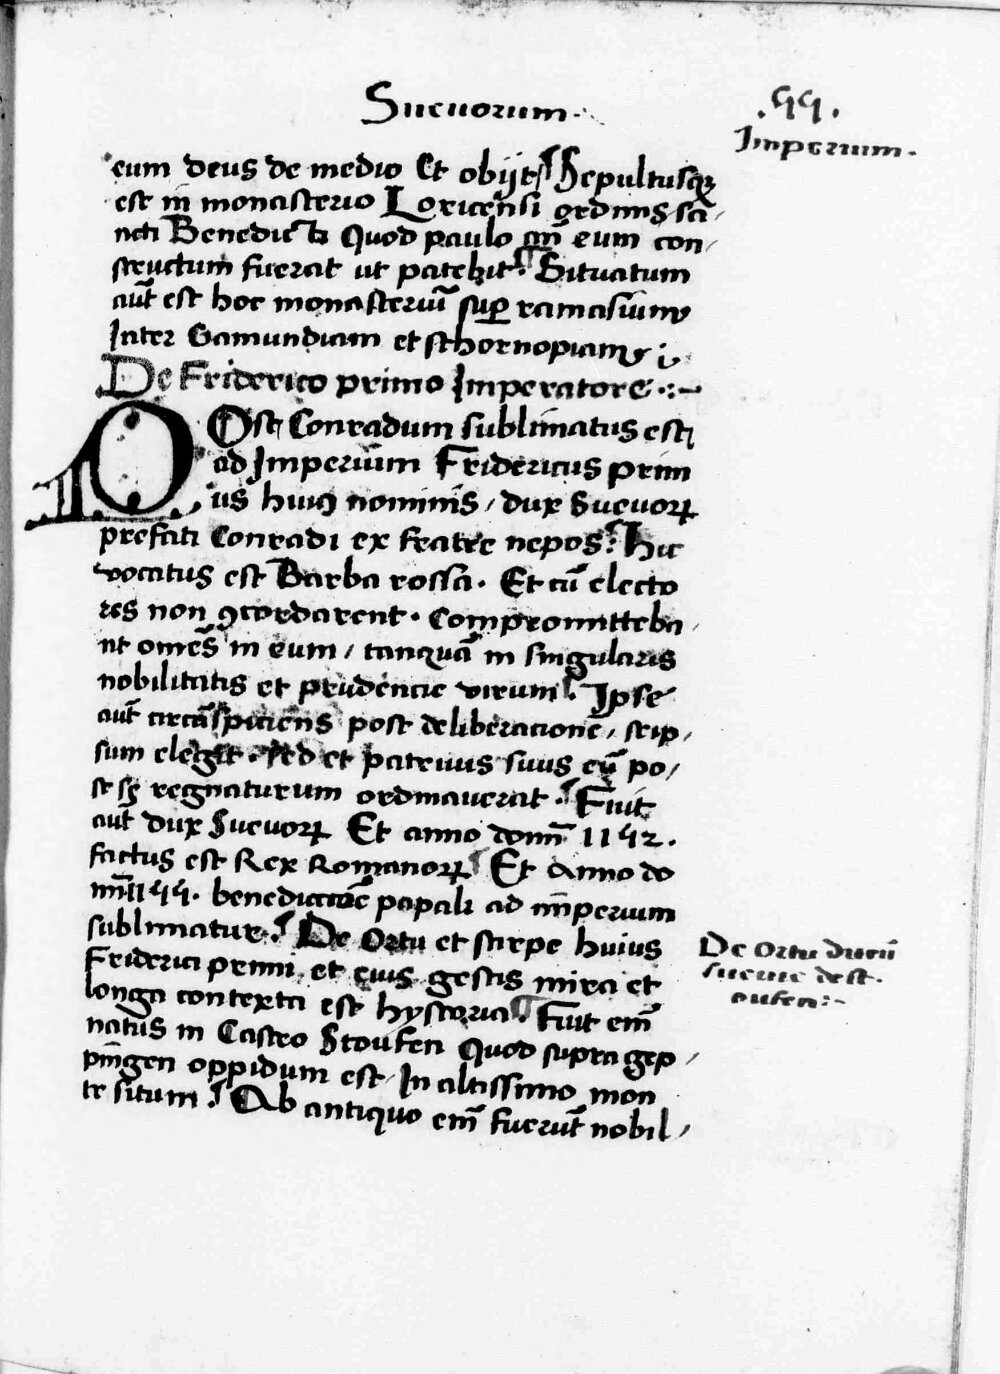 Sueuorum.
.55.
Imperium.
eum deus de medio Et obijt Sepultusqꝫ
est in monasterio Loricēnsi ordinis sa/
ncti Benedicti Quod paulo an̄ eum con/
structum fuerat ut patebit. Situatum
aut̄ est hoc monasteriū suꝑ ramasium
Inter Gamundiam et schornopiam
De Friderico primo Imperatore.
POst Conradum sublimatus est
ad Imperium Fridericus prim
us huiꝰ nominis, dux Sueuoꝝ
prefati Conradi ex fratre nepos. Hic
vocatus est Barba rossa. Et cū electo
res non ꝯcordarent. Compromitteba/
nt om̄es in eum, tanquā in singularis
nobilitatis et prudencie virum. Ipse
aut̄ circūspiciens post deliberacione, seip/
sum elegit. Sed et patruus suus eū po/
st se regnaturum ordinauerat. Fuit
aut̄ dux Sueuoꝝ Et anno domī 1152.
factus est Rex Romanoꝝ Et Anno do
mī 1155. benedictiōe papali ad imperium
sublimatur. De Ortu et stirpe huius
Friderici primi, et eius gestis mira et
longa contexta est hystoria. Fuit em̄
natus in Castro Stoufen Quod supra gep/
pingen oppidum est, In altissimo mon
te situm. Ab antiquo em̄ fuerūt nobil/
De Ortu ducū
sueuie de st
oufen:-